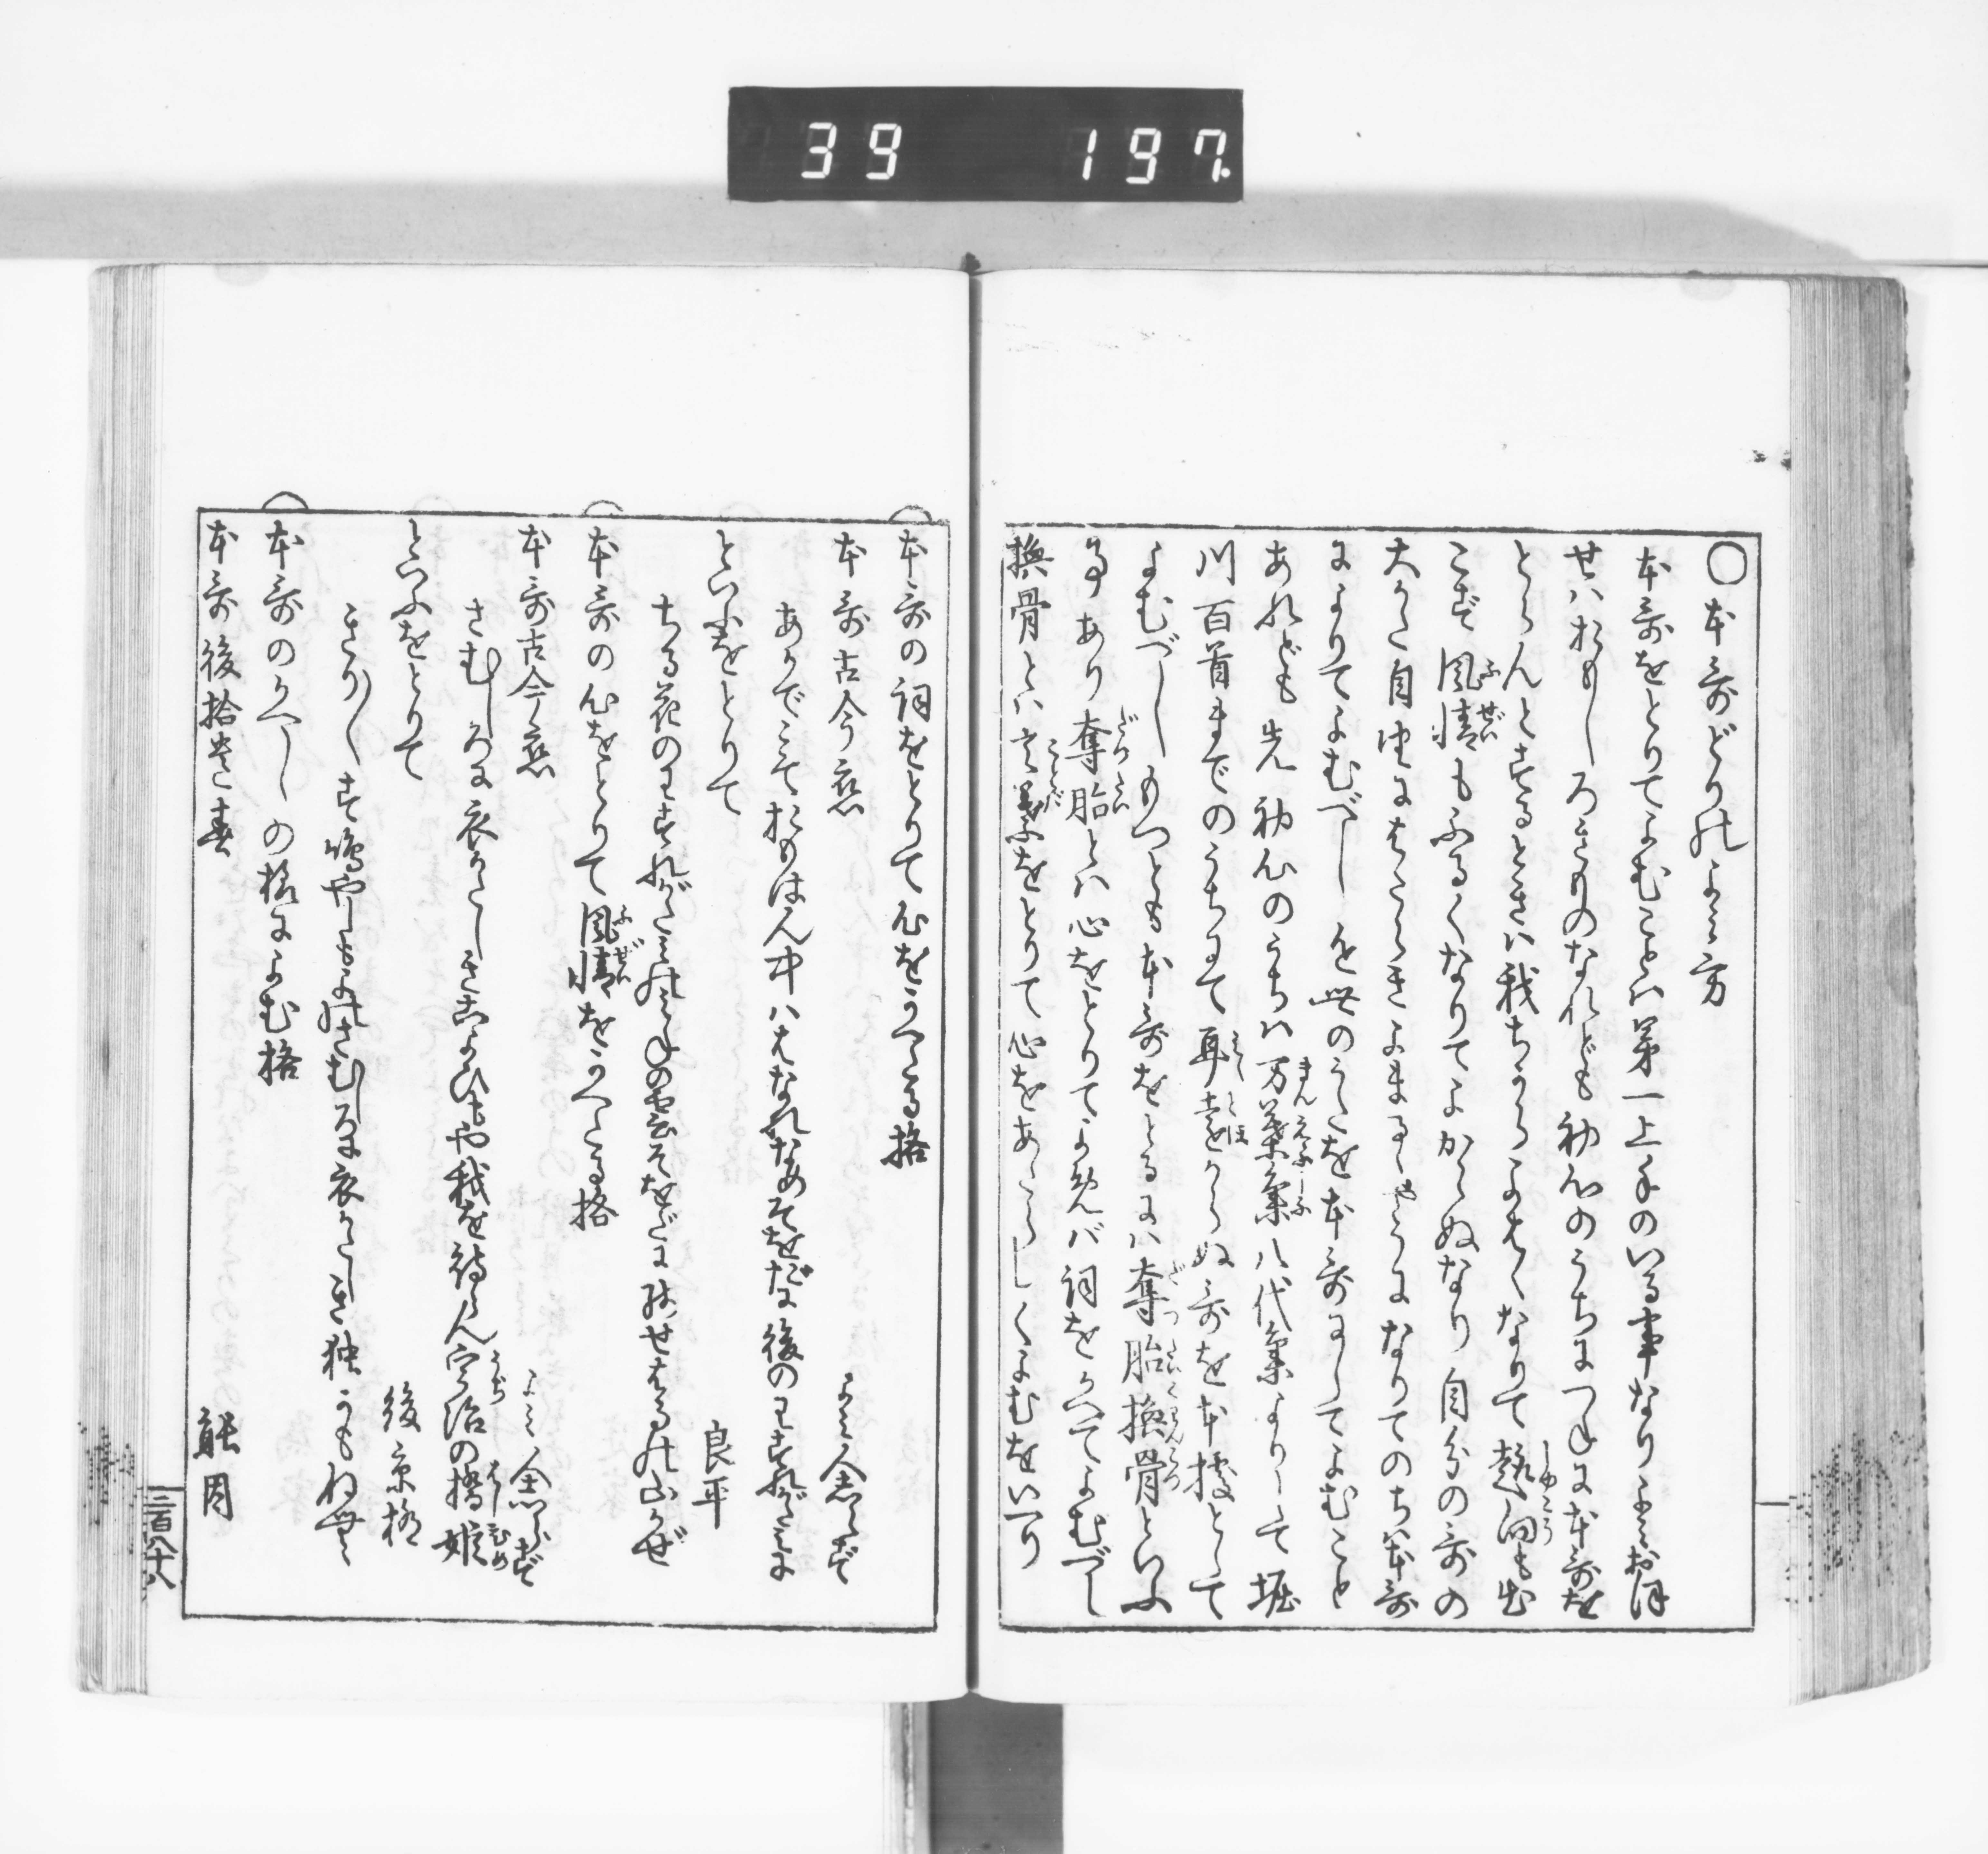 39 197
〇本哥どりのよみ方
本哥をとりてよむことハ第一上手のいる事なりよみおほ
せハおもしろきものなれども初心のうちにつねに本哥を
とらんとするときハ我ちからよはくなりて趣向も出
こず風情もふるくなりてよからぬなり自分の哥の
大かた自由にはたらきよまるゝやうになりてのち本哥
によりてよむべし近世のうたを本哥にしてよむこと
あれども先初心のうちハ万葉集八代集よりして堀
川百首までのうちにて耳遠からぬ哥を本據として
よむべしもつとも本哥をとるにハ奪胎換骨といふ
事あり奪胎とハ心をとりてよめバ詞をかへてよむべし
換骨とハ言葉をとりて心をあたらしくよむをいへり
本哥の詞をとりて心をかへたる格
本哥古今恋 よみ人しらず
あかでこそおもはん中ハはなれなめそをだに後のわすれがたみに
といふをとりて 良平
ちる花のわすれがたみの峰の雲そをだに残せはるの山かぜ
本哥の心をとりて風情をかへたる格
本哥古今恋 よみ人しらず
さむしろに衣かたしきこよひもや我を待らん宇治の橋姫
といふをとりて 後京極
きり〴〵す鳴やしもよのさむしろに衣かたしき独かもねむ
本哥のかへしの様によむ格
本哥後拾遺春 能因
二百八十八